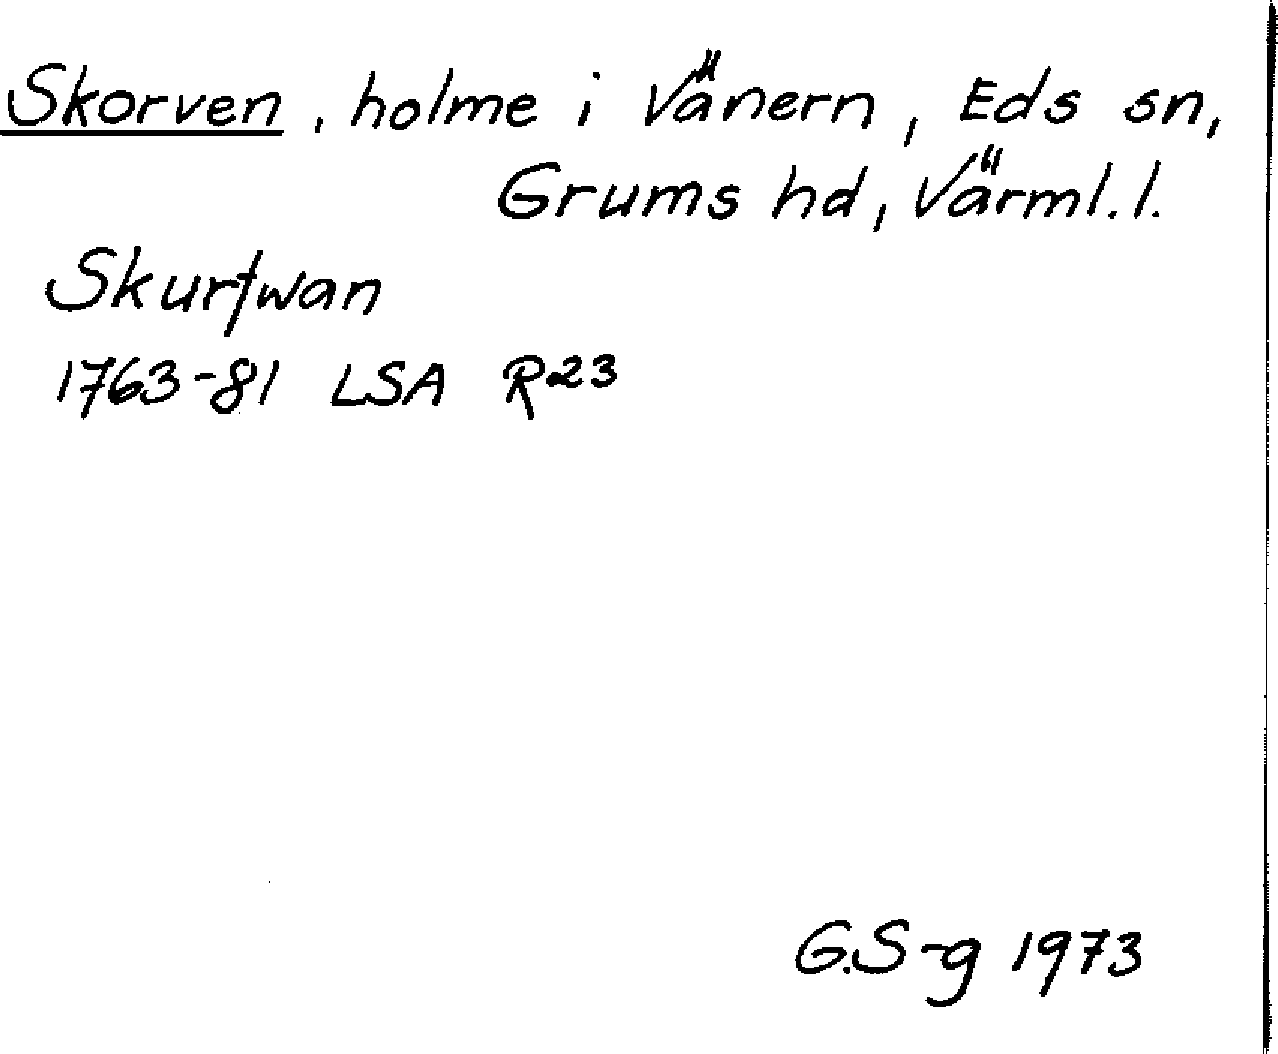 Skorven, holme i Vänern, Eds sn,
Grums hd, Värml. l.
Skurfwan
1763-81 LSA R23
G.S-g 1973